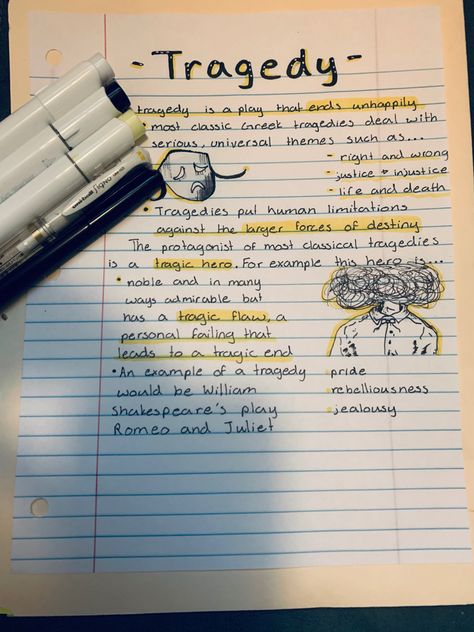 - Tragedy -
tragedy is a play that ends unhappily
• most classic Greek tragedies deal with
serious, universal themes such as...
- right and wrong
- justice + injustice
- life and death
• Tragedies put human limitations
against the larger forces of destiny
The protagonist of most classical tragedies
is a tragic hero. For example this hero is...
• noble and in many
ways admirable but
has a tragic flaw, a
personal failing that
leads to a tragic end
• pride
• rebelliousness
• jealousy
• An example of a tragedy
would be William
Shakespeare's play
Romeo and Juliet
uni-ball SIGNO